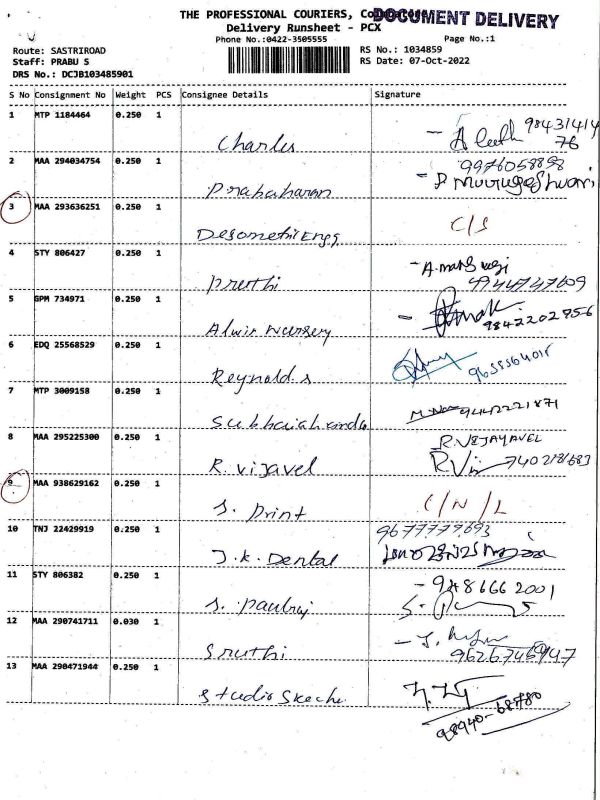 THE PROFESSIONAL COURIERS,
DOCUMENT DELIVERY
Delivery Runsheet - PCX
Phone No.:0422-3505555
Page No.:1
Route: SASTRIROAD
Staff: PRABU S
DRS No.: DCJB103485901
RS No.: 1034859
RS Date: 07-Oct-2022
S No Consignment No Weight PCS Consignee Details Signature
1 MTP 1184464 0.250 1
Charles 98431414
76
2 MAA 294034754 0.250 1 9976058898
Prabaharan P Murugeshwari
3 MAA 293636251 0.250 1 C/S
4 STY 806427 0.250 1
Pruthi 9944747609
5 GPM 734971 0.250 1
Alwin Nursery 9842202956
6 EDQ 25568529 0.250 1
Reynolds 9655564018
7 MTP 3009158 0.250 1
9442221871
8 MAA 295225300 0.250 1 R.VIJAYAVEL
R. Vijavel
9 MAA 938629162 0.250 1
S. Print C/N/L
10 TNJ 22429919 0.250 1 9677777693
J.K. Dental
11 STY 806382 0.250 1 9486662001
S. Paulraj
12 MAA 290741711 0.030 1
Sruthi
13 MAA 290471944 0.250 1
98940-68780